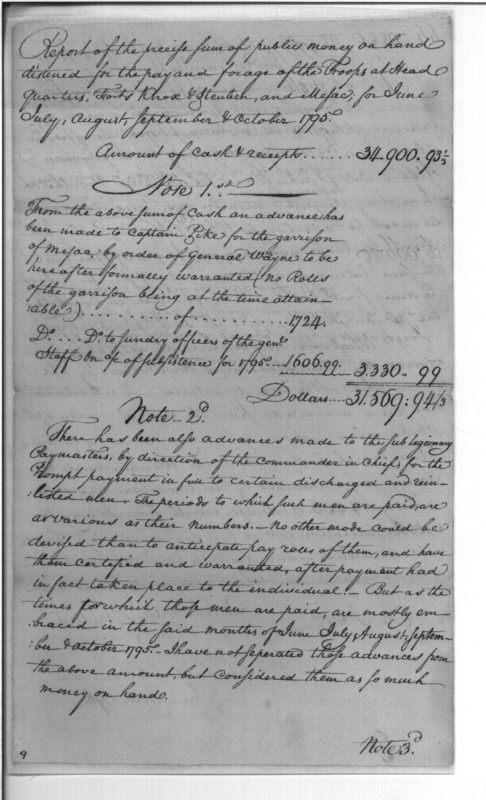 Report of the precise sum of public money on hand
destined for the pay and forage of the Troops at Head
quarters, Forts Knox & Steuben, and Mesac, for June
July, August, September & October 1795.
Amount of Cash & receipts....... 34.900.93 1/3
Note 1.st
From the above sum of Cash an advance has
been made to Captain Pike for the garrison
of Mesac, by order of General Wayne to be
hereafter formally warranted (no Rolls
of the garrison being at the time attain-
:able).......... of .......... 1724.
Do.... Do. to sundry officers of the genl.
Staff on a/c of subsistence for 1795... 1606.99. 3.330.. 99
Dollars.... 31.569:94 1/3
Note.. 2d
There has been also advances made to the sub Legionary
Paymasters, by direction of the Commander in Chief; for the
Prompt payment in full to certain discharged and rein-
:listed men. The periods to which such men are paid, are
as various as their numbers. – No other mode could be
devised than to anticepate pay roles of them, and have
them certified and warranted, after payment had
in fact taken place to the individual. – But as the
times for which those men are paid, are mostly em-
:braced in the said months of June July, August, Septem-
:ber & October 1795. – I have not seperated those advances from
the above amount, but considered them as so much
money on hand.
Note 3d
9